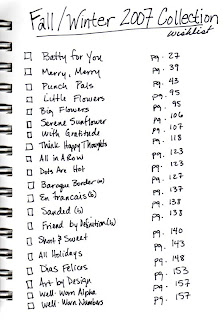 Fall/Winter 2007 Collection
wishlist
Batty for You pg. 27
Merry, Merry pg. 39
Punch Pals pg. 43
Little Flowers pg. 95
Big Flowers pg. 95
Serene Sunflower pg. 106
With Gratitude pg. 107
Think Happy Thoughts pg. 118
All in a Row pg. 123
Dots Are Hot pg. 123
Baroque Border(w) pg. 127
En Francais(w) pg. 137
Sanded (w) pg. 138
Friend by Definition(w) pg. 138
Short & Sweet pg. 140
All Holidays pg. 143
Dias Felices pg. 148
Art by Design pg. 153
Well-Worn Alpha pg. 157
Well-Worn Numbers pg. 157